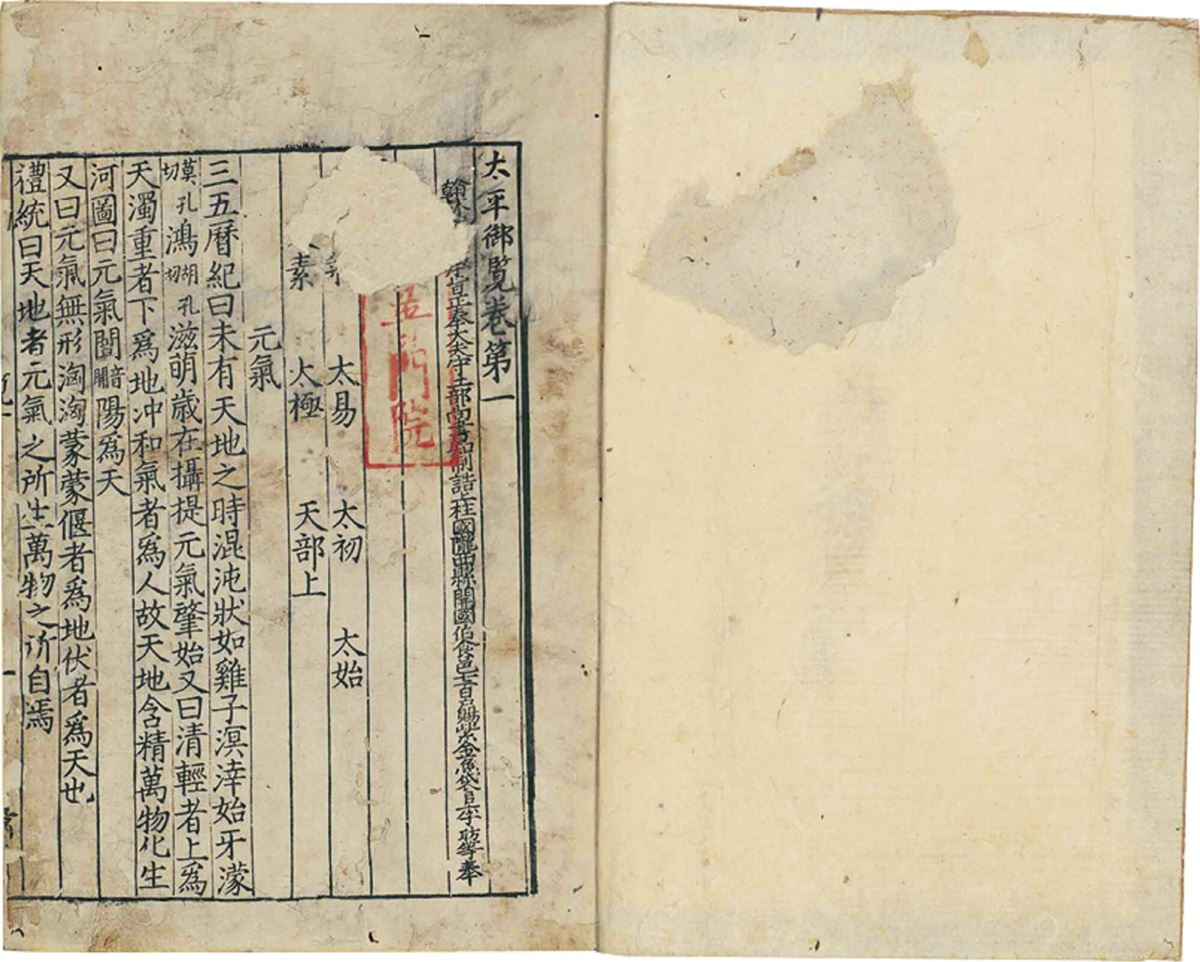 太平御覽卷第一
翰林 正奉大夫守工部尚書知制誥上柱國隴西縣開國伯食邑七百戶賜紫金魚袋臣李昉等奉
門院
太易 太初 太始
素 太極 天部上
元氣
三五曆紀曰未有天地之時混沌狀如雞子溟涬始牙濛
莫孔切鴻胡孔切滋萌歲在攝提元氣肇始又曰清輕者上爲
天濁重者下爲地冲和氣者爲人故天地含精萬物化生
河圖曰元氣闓音開陽爲天
又曰元氣無形洶洶蒙蒙偃者爲地伏者爲天也
禮統曰天地者元氣之所生萬物之所自焉
一